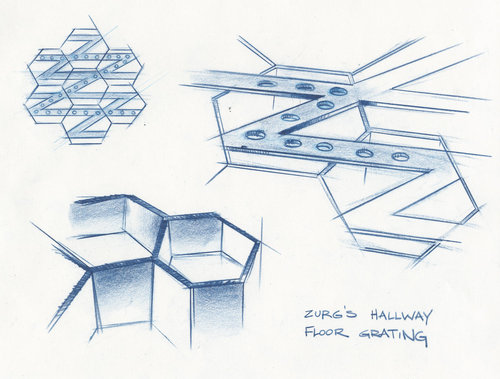 ZURG'S HALLWAY
FLOOR GRATING